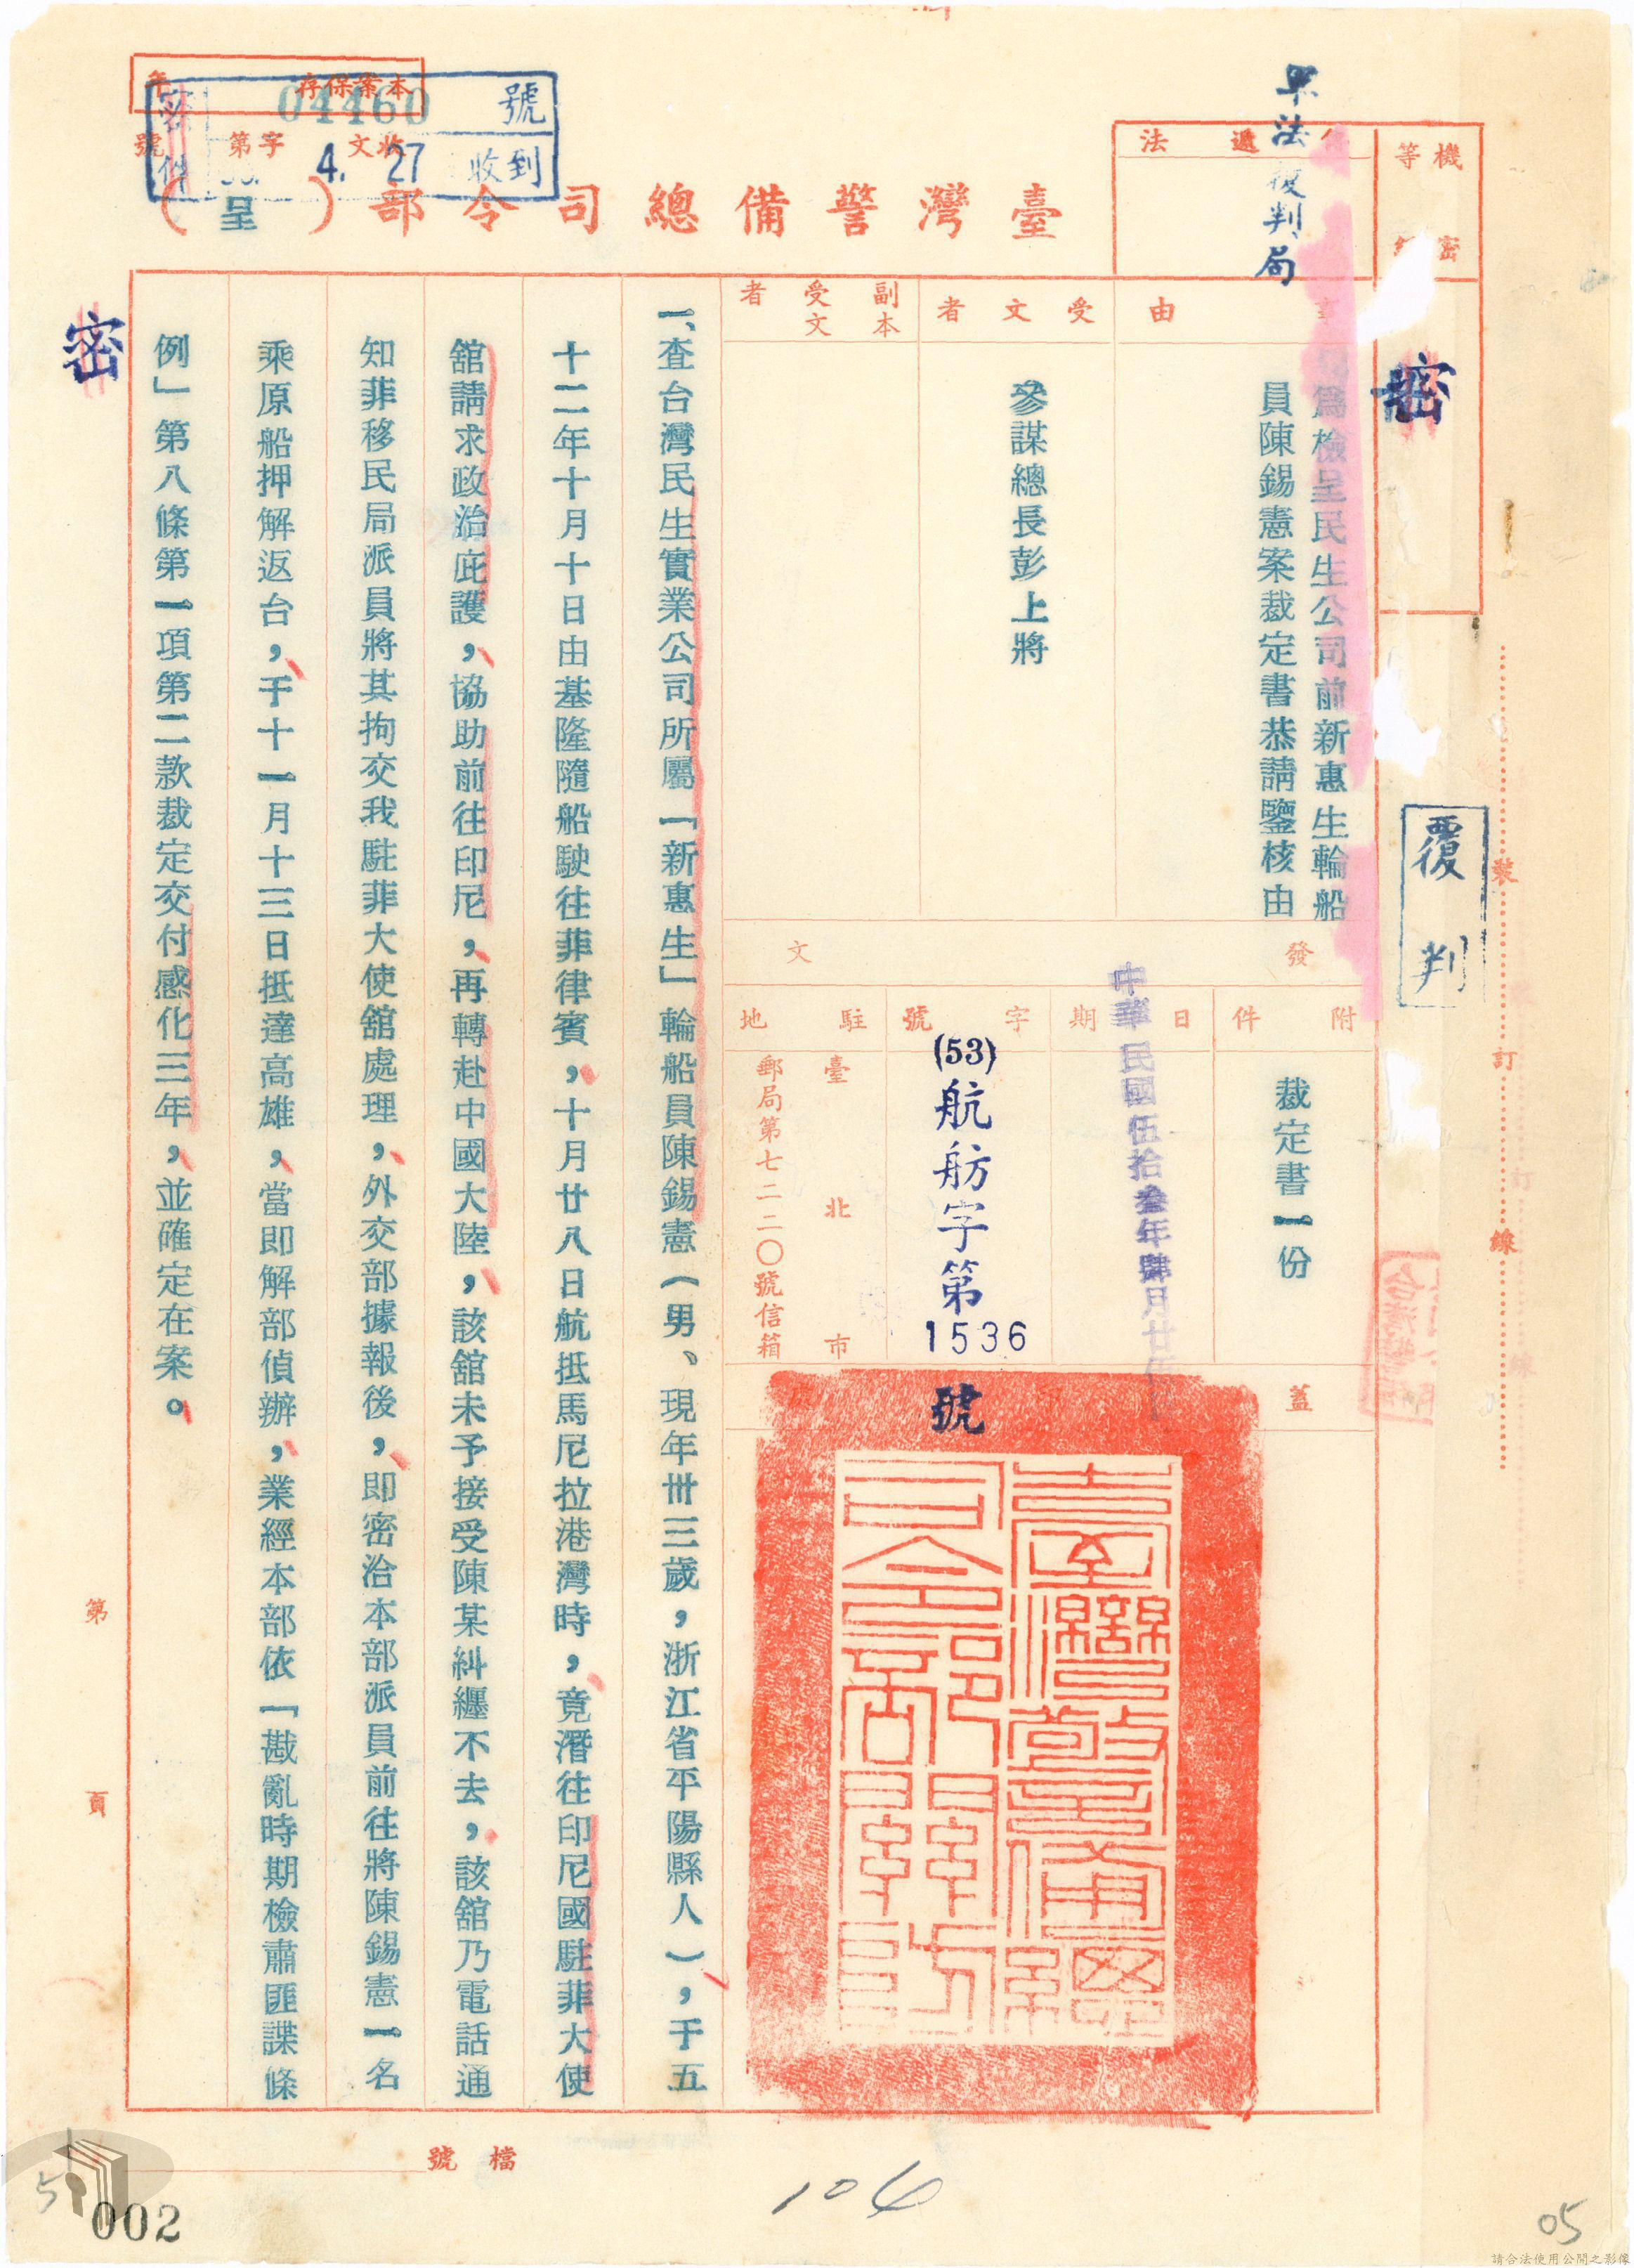 軍法覆判局
機密等級
密
遞法
臺灣警備總司令部（呈）
本案保存年
收文字第號
密件
04460號
4. 27收到
由
為檢呈民生公司前新惠生輪船
員陳錫憲案裁定書恭請鑒核由
受文者
參謀總長彭上將
副本受文者
發文
附件
裁定書一份
日期
中華民國伍拾叁年肆月廿伍
字號
(53)航舫字第1536號
駐地
臺北市
郵局第七二二〇號信箱
蓋
臺灣警備總司令部關防
一、查台灣民生實業公司所屬「新惠生」輪船員陳錫憲（男、現年卅三歲，浙江省平陽縣人），于五
十二年十月十日由基隆隨船駛往菲律賓，十月廿八日航抵馬尼拉港灣時，竟潛往印尼國駐菲大使
舘請求政治庇護，協助前往印尼，再轉赴中國大陸，該舘未予接受陳某糾纏不去，該舘乃電話通
知菲移民局派員將其拘交我駐菲大使舘處理，外交部據報後，即密洽本部派員前往將陳錫憲一名
乘原船押解返台，于十一月十三日抵達高雄，當即解部偵辦，業經本部依「戡亂時期檢肅匪諜條
例」第八條第一項第二款裁定交付感化三年，並確定在案。
密
覆判
裝訂線
第頁
檔號
104
5
002
05
請合法使用公開之影像